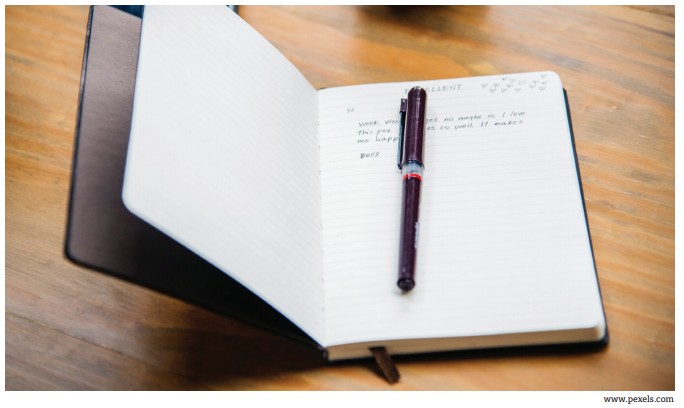 ELLENT
so
week, yes no maybe so. I love
this pen. es so well. It makes
me happ
www.pexels.com